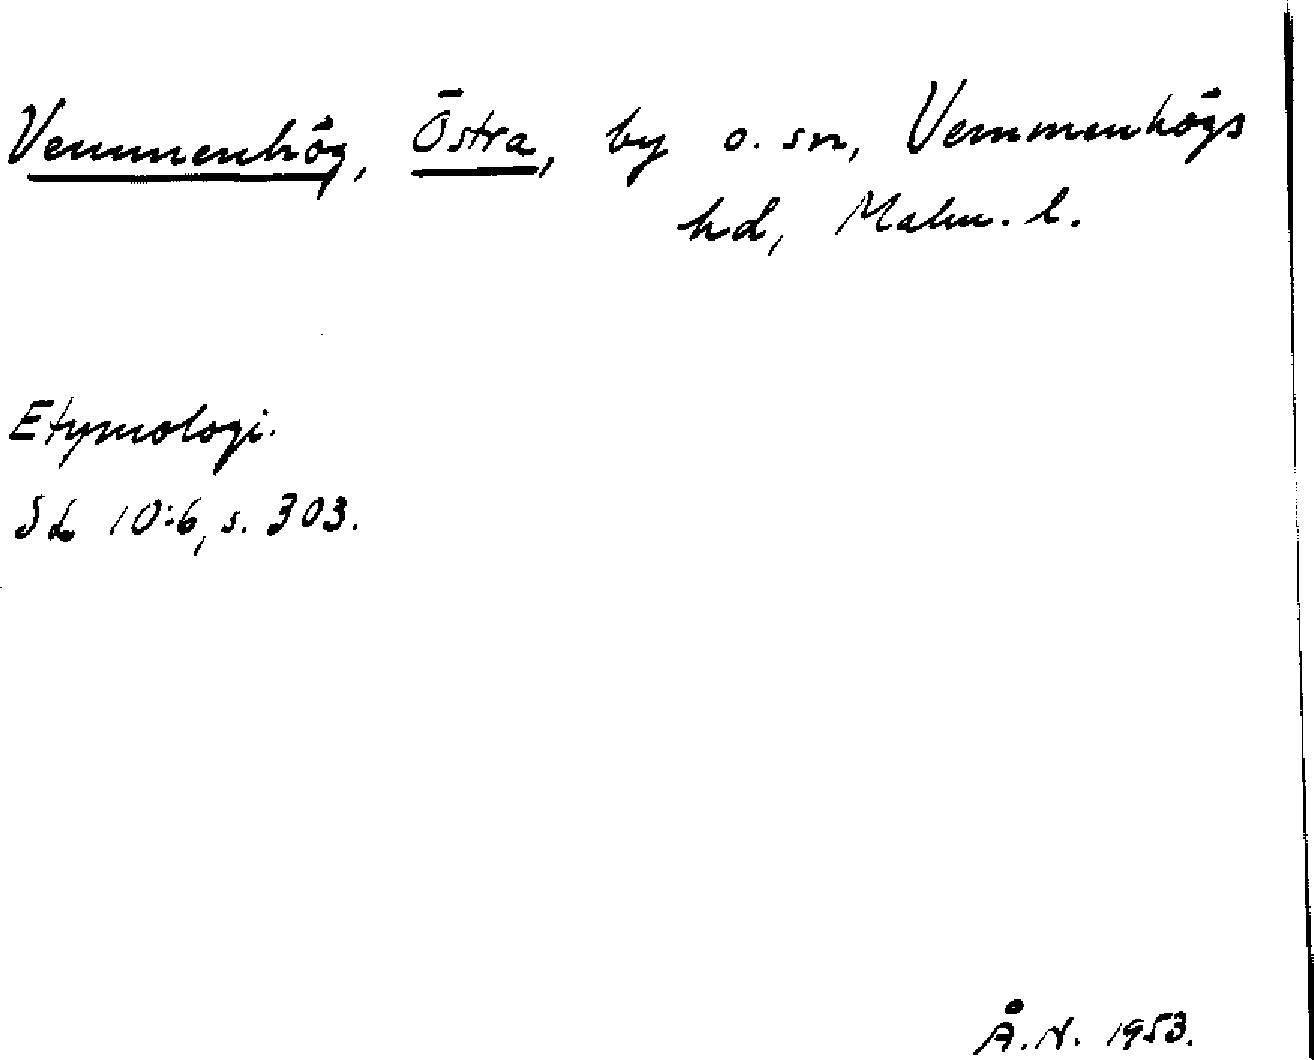 Vemmenhög, Östra, by o. sn, Vemmenhögs
hd, Malm. l.
Etymologi.
Sd 10:6, s. 303.
Å.N. 1953.